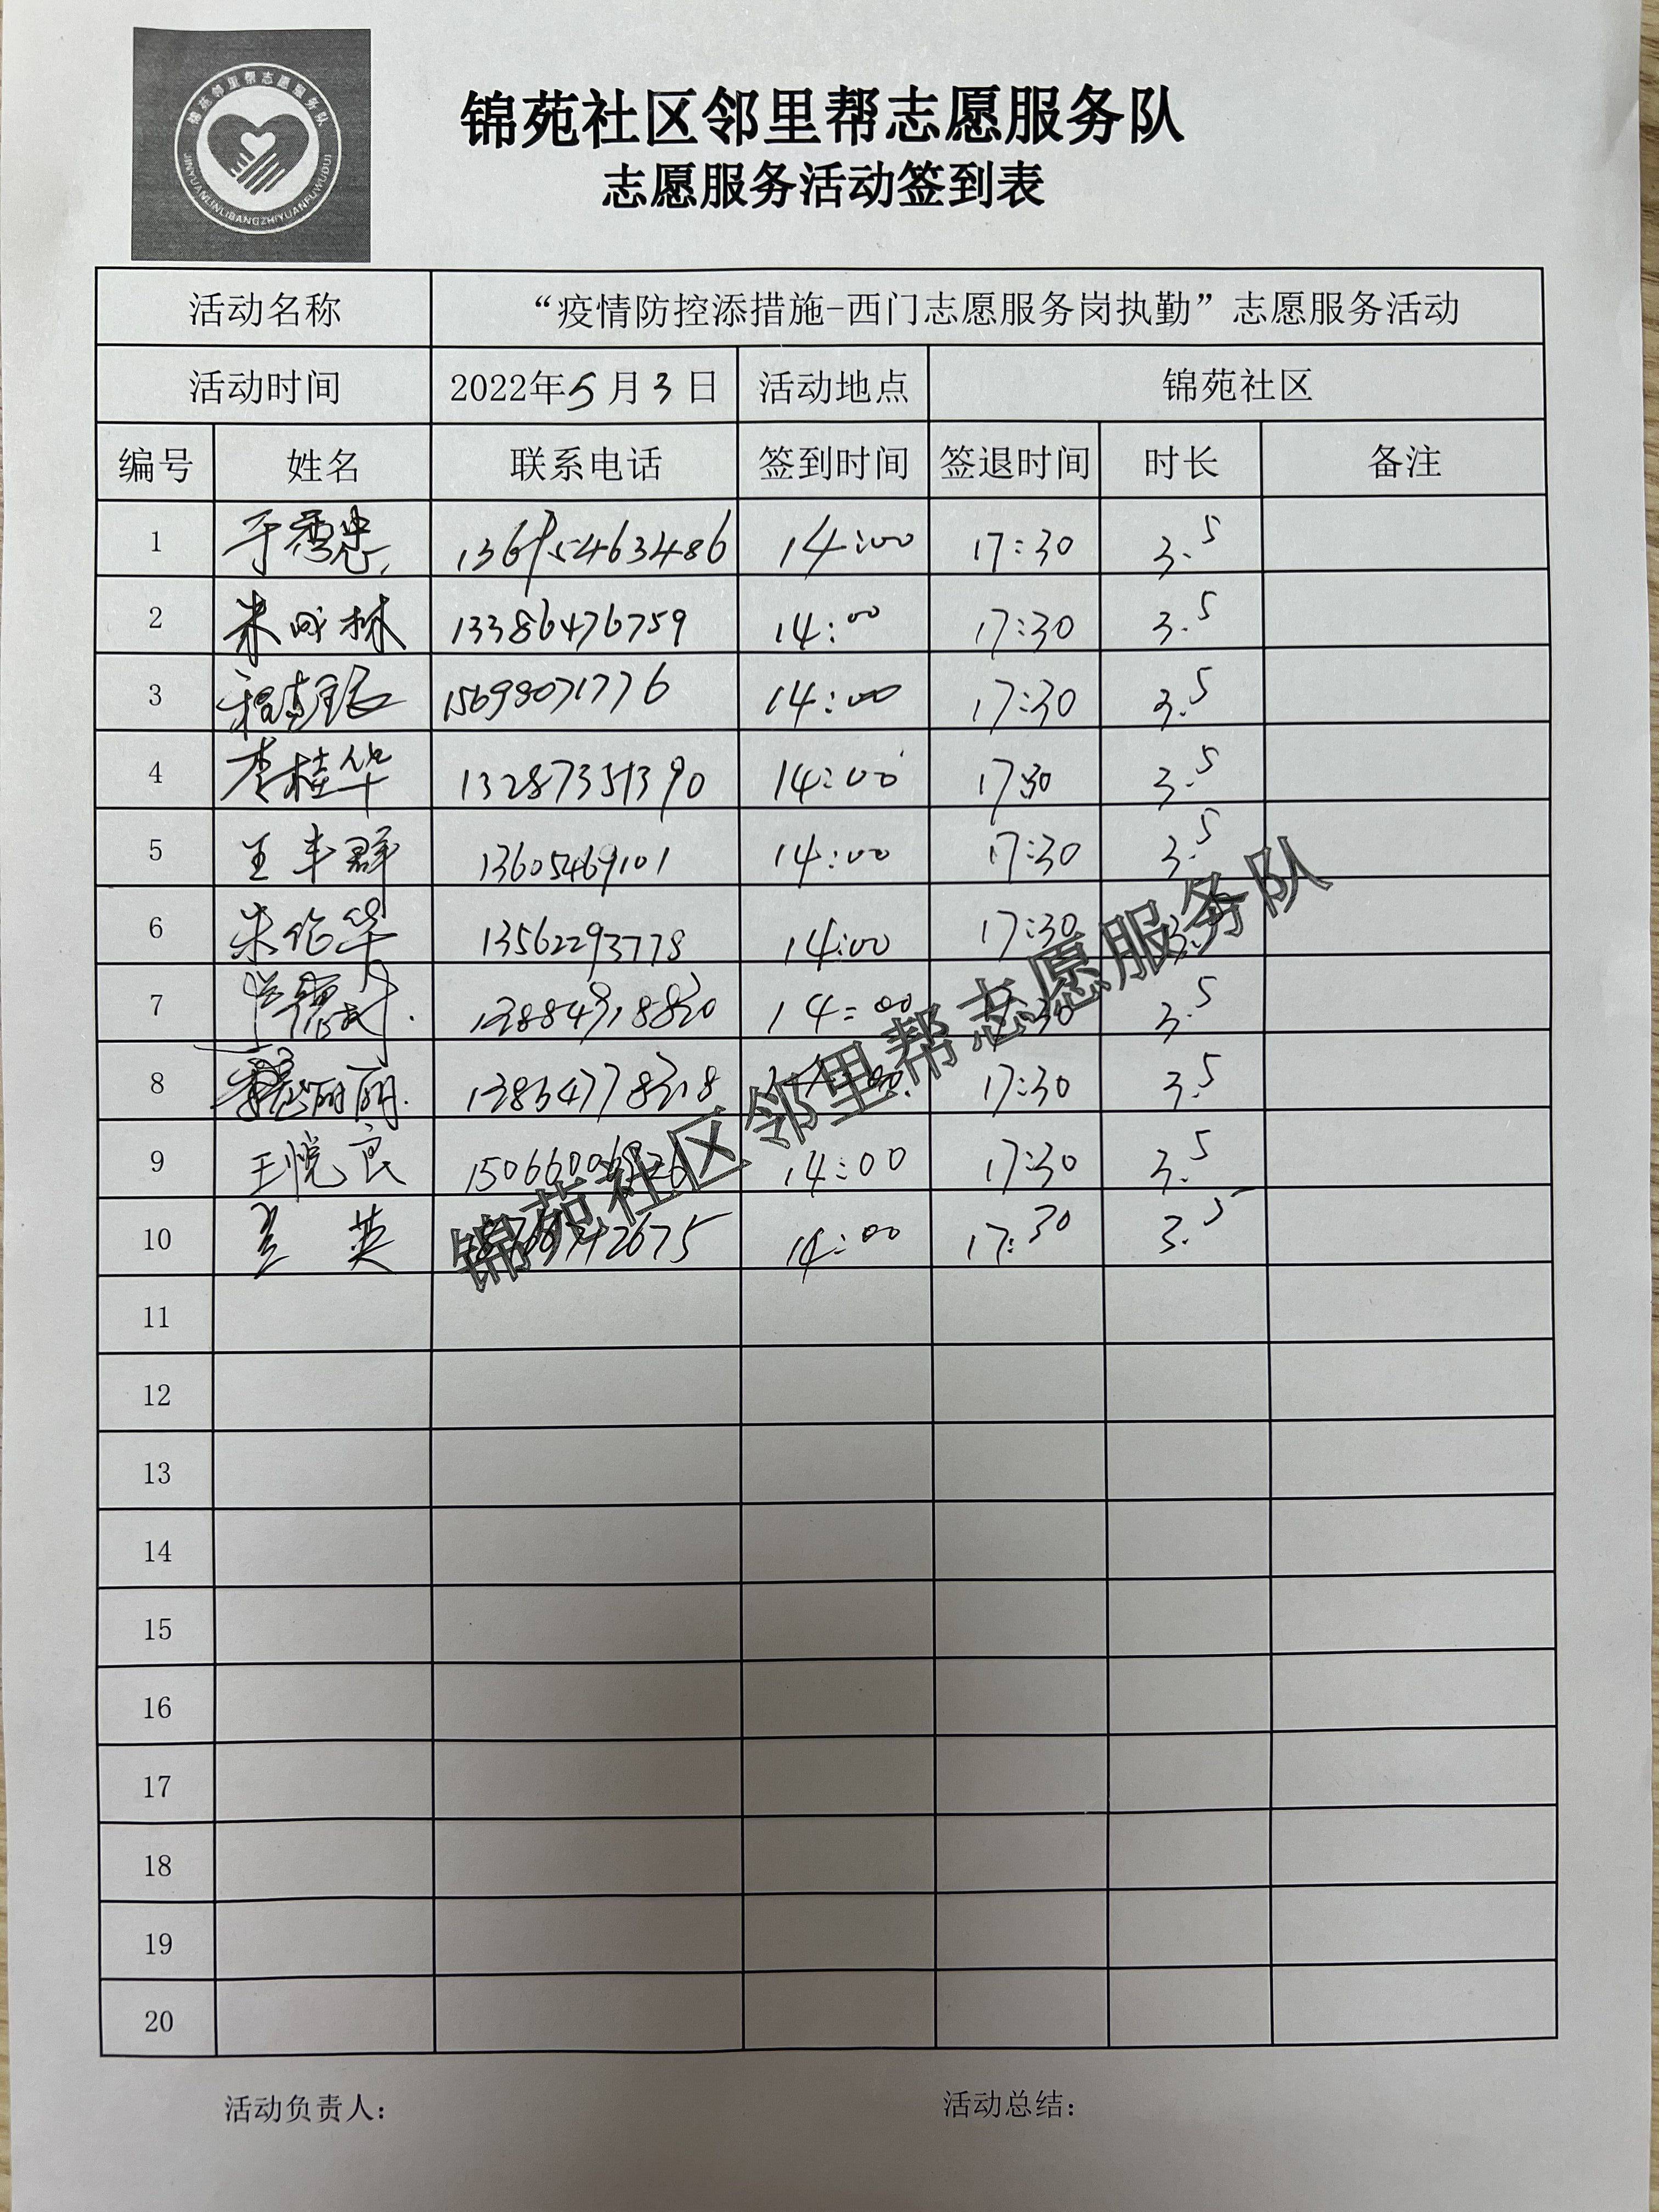 锦苑邻里帮志愿服务队
JINYUANLINLIBANGZHIYUANFUWUDUI
锦苑社区邻里帮志愿服务队
志愿服务活动签到表
活动名称 “疫情防控添措施-西门志愿服务岗执勤”志愿服务活动
活动时间 2022年5月3日 活动地点 锦苑社区
编号 姓名 联系电话 签到时间 签退时间 时长 备注
1 于秀忠 14:00 17:30 3.5
2 朱成林 13386476759 14:00 17:30 3.5
3 15698071776 14:00 17:30 3.5
4 李桂华 13287351390 14:00 17:30 3.5
5 王丰群 13605469101 14:00 17:30 3.5
6 朱伦华 13562293778 14:00 17:30 3.5
7 14:00 17:30 3.5
8 14:00 17:30 3.5
9 王悦良 14:00 17:30 3.5
10 英 14:00 17:30 3.5
11
12
13
14
15
16
17
18
19
20
锦苑社区邻里帮志愿服务队
活动负责人: 活动总结: